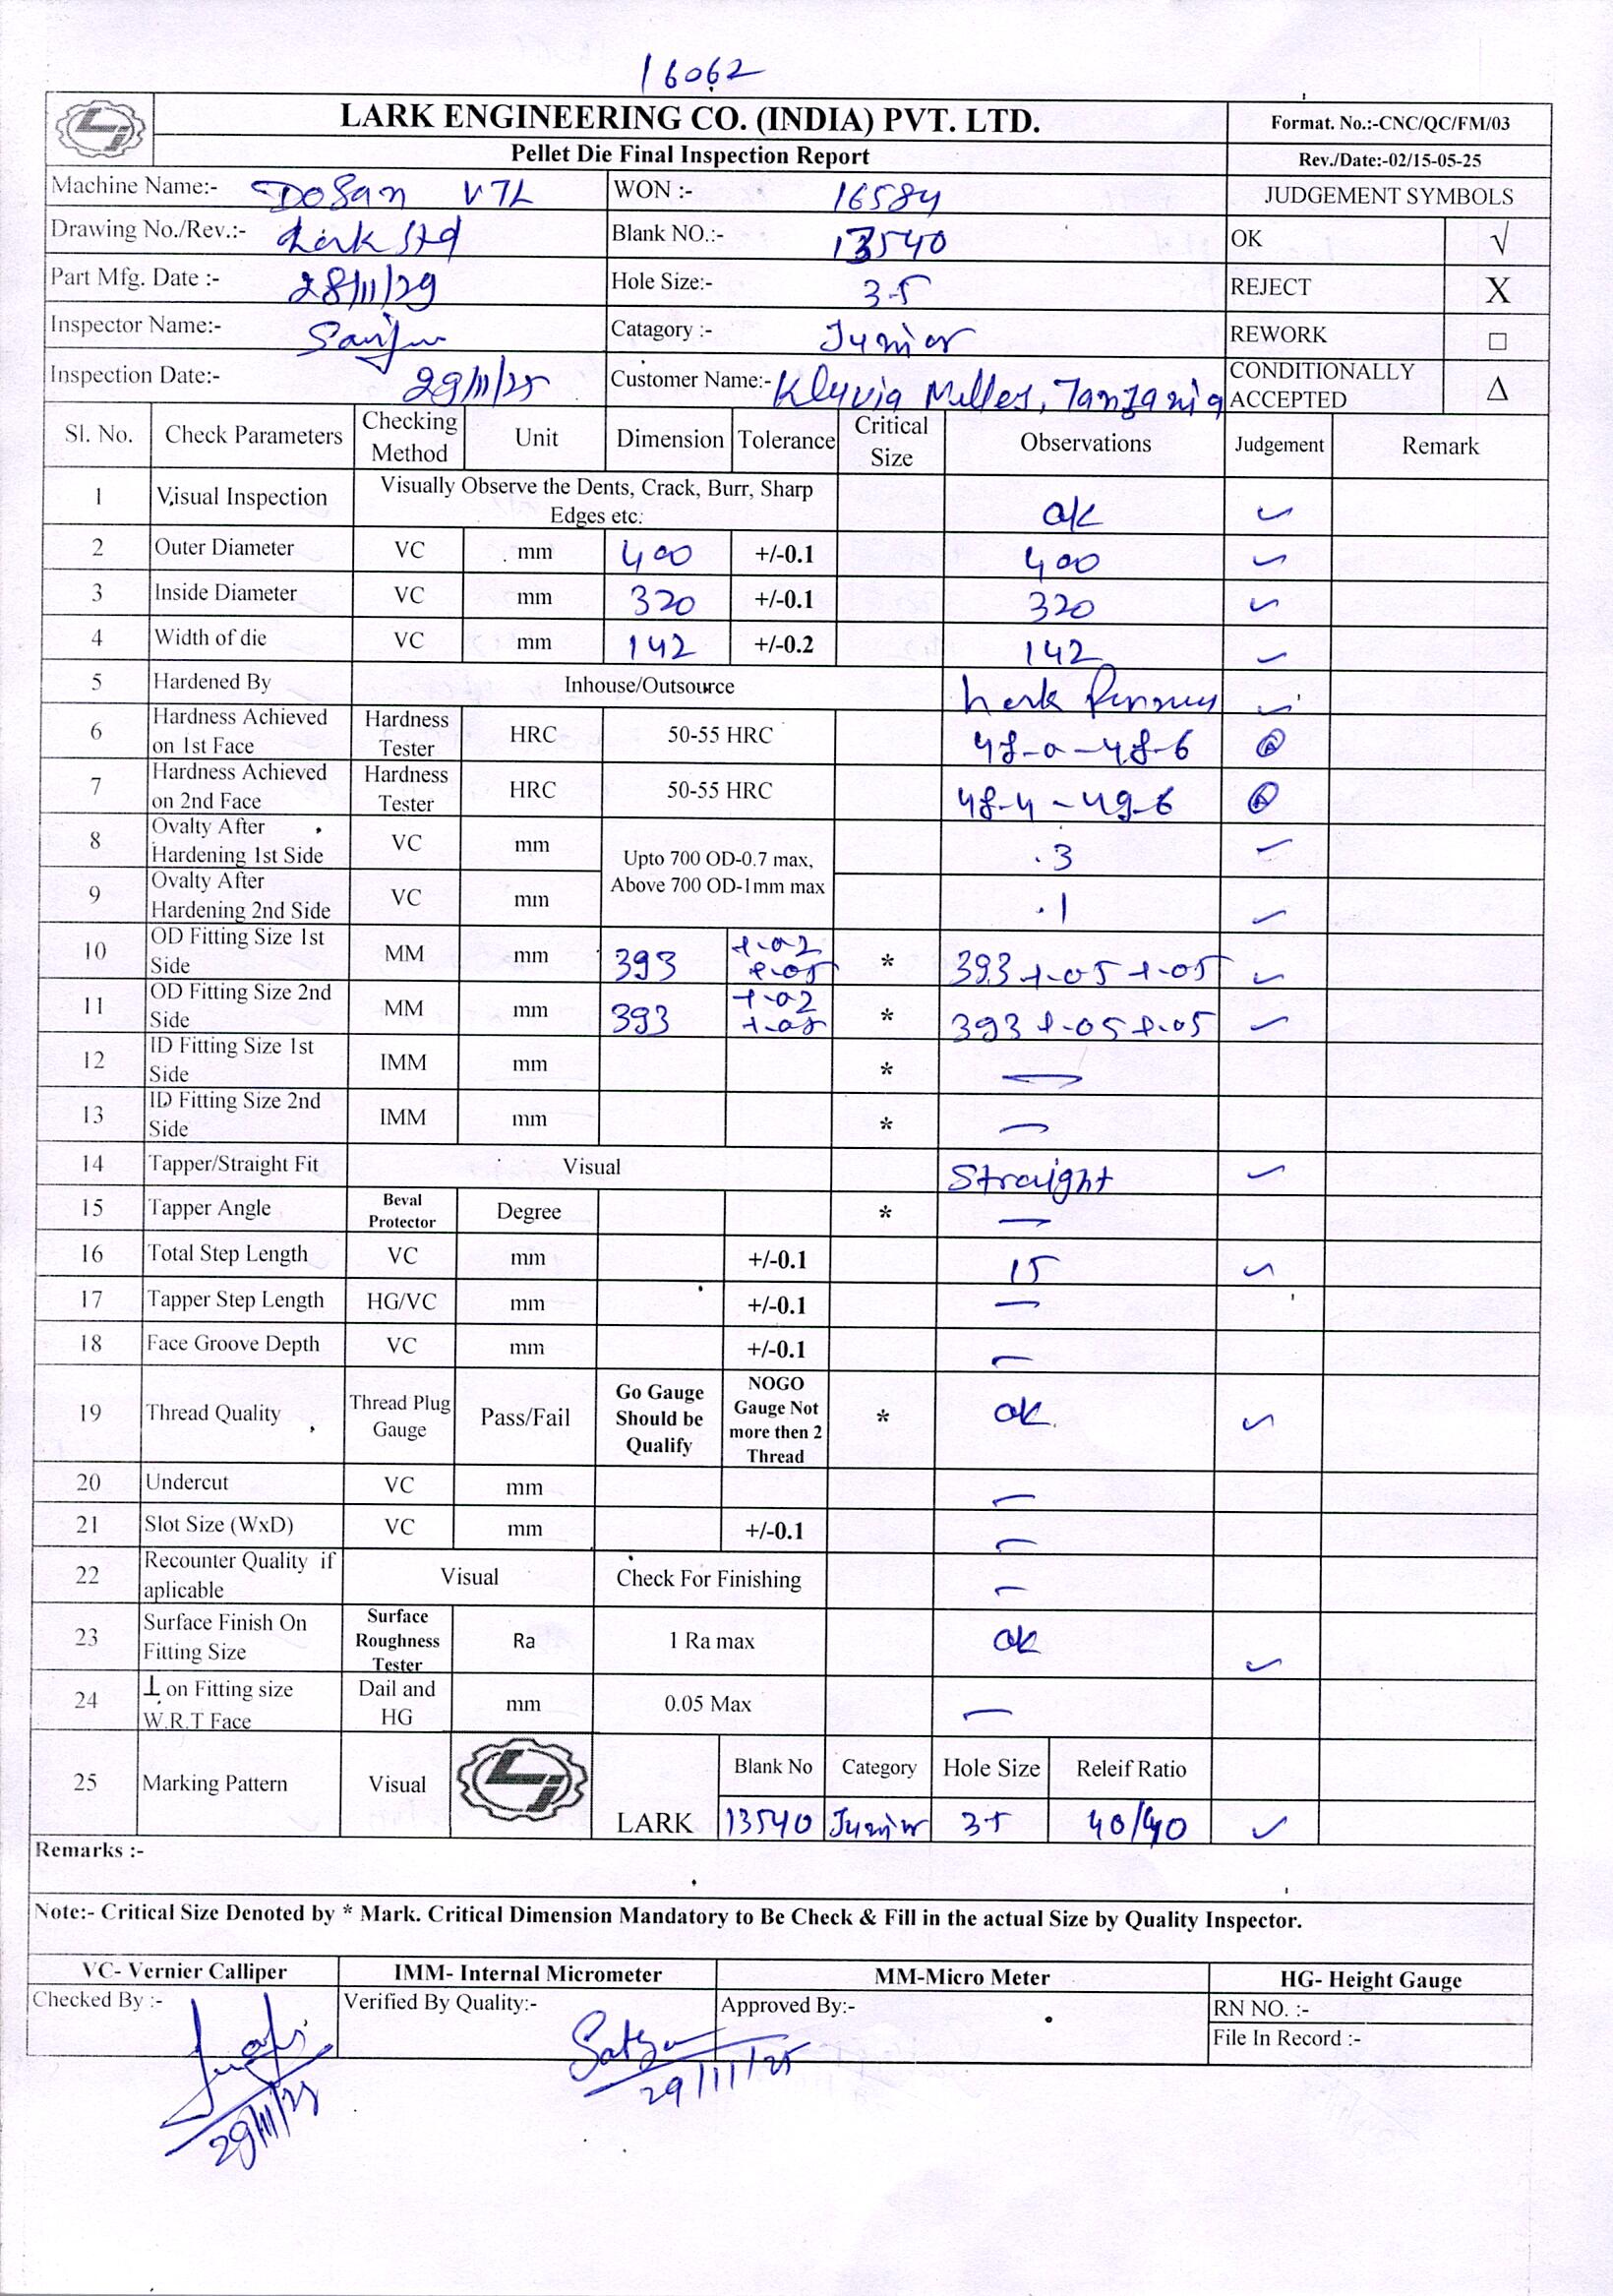 16062
LARK ENGINEERING CO. (INDIA) PVT. LTD.
Format. No.:-CNC/QC/FM/03
Pellet Die Final Inspection Report
Rev./Date:-02/15-05-25
Machine Name:- DoSan VTL WON :- 16584 JUDGEMENT SYMBOLS
Drawing No./Rev.:- Lark Std Blank NO.:- 13540 OK √
Part Mfg. Date :- 28/11/29 Hole Size:- 3.5 REJECT X
Inspector Name:- Catagory :- Junior REWORK □
Inspection Date:- 29/11/25 Customer Name:- Tanzania CONDITIONALLY ACCEPTED Δ
Sl. No. Check Parameters Checking Method Unit Dimension Tolerance Critical Size Observations Judgement Remark
1 Visual Inspection Visually Observe the Dents, Crack, Burr, Sharp Edges etc: ok ✓
2 Outer Diameter VC mm 400 +/-0.1 400 ✓
3 Inside Diameter VC mm 320 +/-0.1 320 ✓
4 Width of die VC mm 142 +/-0.2 142 ✓
5 Hardened By Inhouse/Outsource Lark ✓
6 Hardness Achieved on 1st Face Hardness Tester HRC 50-55 HRC 48-0 - 48-6
7 Hardness Achieved on 2nd Face Hardness Tester HRC 50-55 HRC 48-4 - 49-6
8 Ovalty After Hardening 1st Side VC mm Upto 700 OD-0.7 max, Above 700 OD-1mm max .3 ✓
9 Ovalty After Hardening 2nd Side VC mm .1 ✓
10 OD Fitting Size 1st Side MM mm 393 +.02 +.05 * 393 +.05 +.05 ✓
11 OD Fitting Size 2nd Side MM mm 393 +.02 +.05 * 393 +.05 +.05 ✓
12 ID Fitting Size 1st Side IMM mm * —
13 ID Fitting Size 2nd Side IMM mm * —
14 Tapper/Straight Fit Visual Straight ✓
15 Tapper Angle Beval Protector Degree * —
16 Total Step Length VC mm +/-0.1 15 ✓
17 Tapper Step Length HG/VC mm +/-0.1 —
18 Face Groove Depth VC mm +/-0.1 —
19 Thread Quality Thread Plug Gauge Pass/Fail Go Gauge Should be Qualify NOGO Gauge Not more then 2 Thread * ok ✓
20 Undercut VC mm —
21 Slot Size (WxD) VC mm +/-0.1 —
22 Recounter Quality if aplicable Visual Check For Finishing —
23 Surface Finish On Fitting Size Surface Roughness Tester Ra 1 Ra max ok ✓
24 ⊥ on Fitting size W.R.T Face Dail and HG mm 0.05 Max —
25 Marking Pattern Visual LARK Blank No Category Hole Size Releif Ratio
13540 Junior 3.5 40/40 ✓
Remarks :-
Note:- Critical Size Denoted by * Mark. Critical Dimension Mandatory to Be Check & Fill in the actual Size by Quality Inspector.
VC- Vernier Calliper IMM- Internal Micrometer MM-Micro Meter HG- Height Gauge
Checked By :- Verified By Quality:- Approved By:- RN NO. :-
File In Record :-
29/11/25 29/11/25